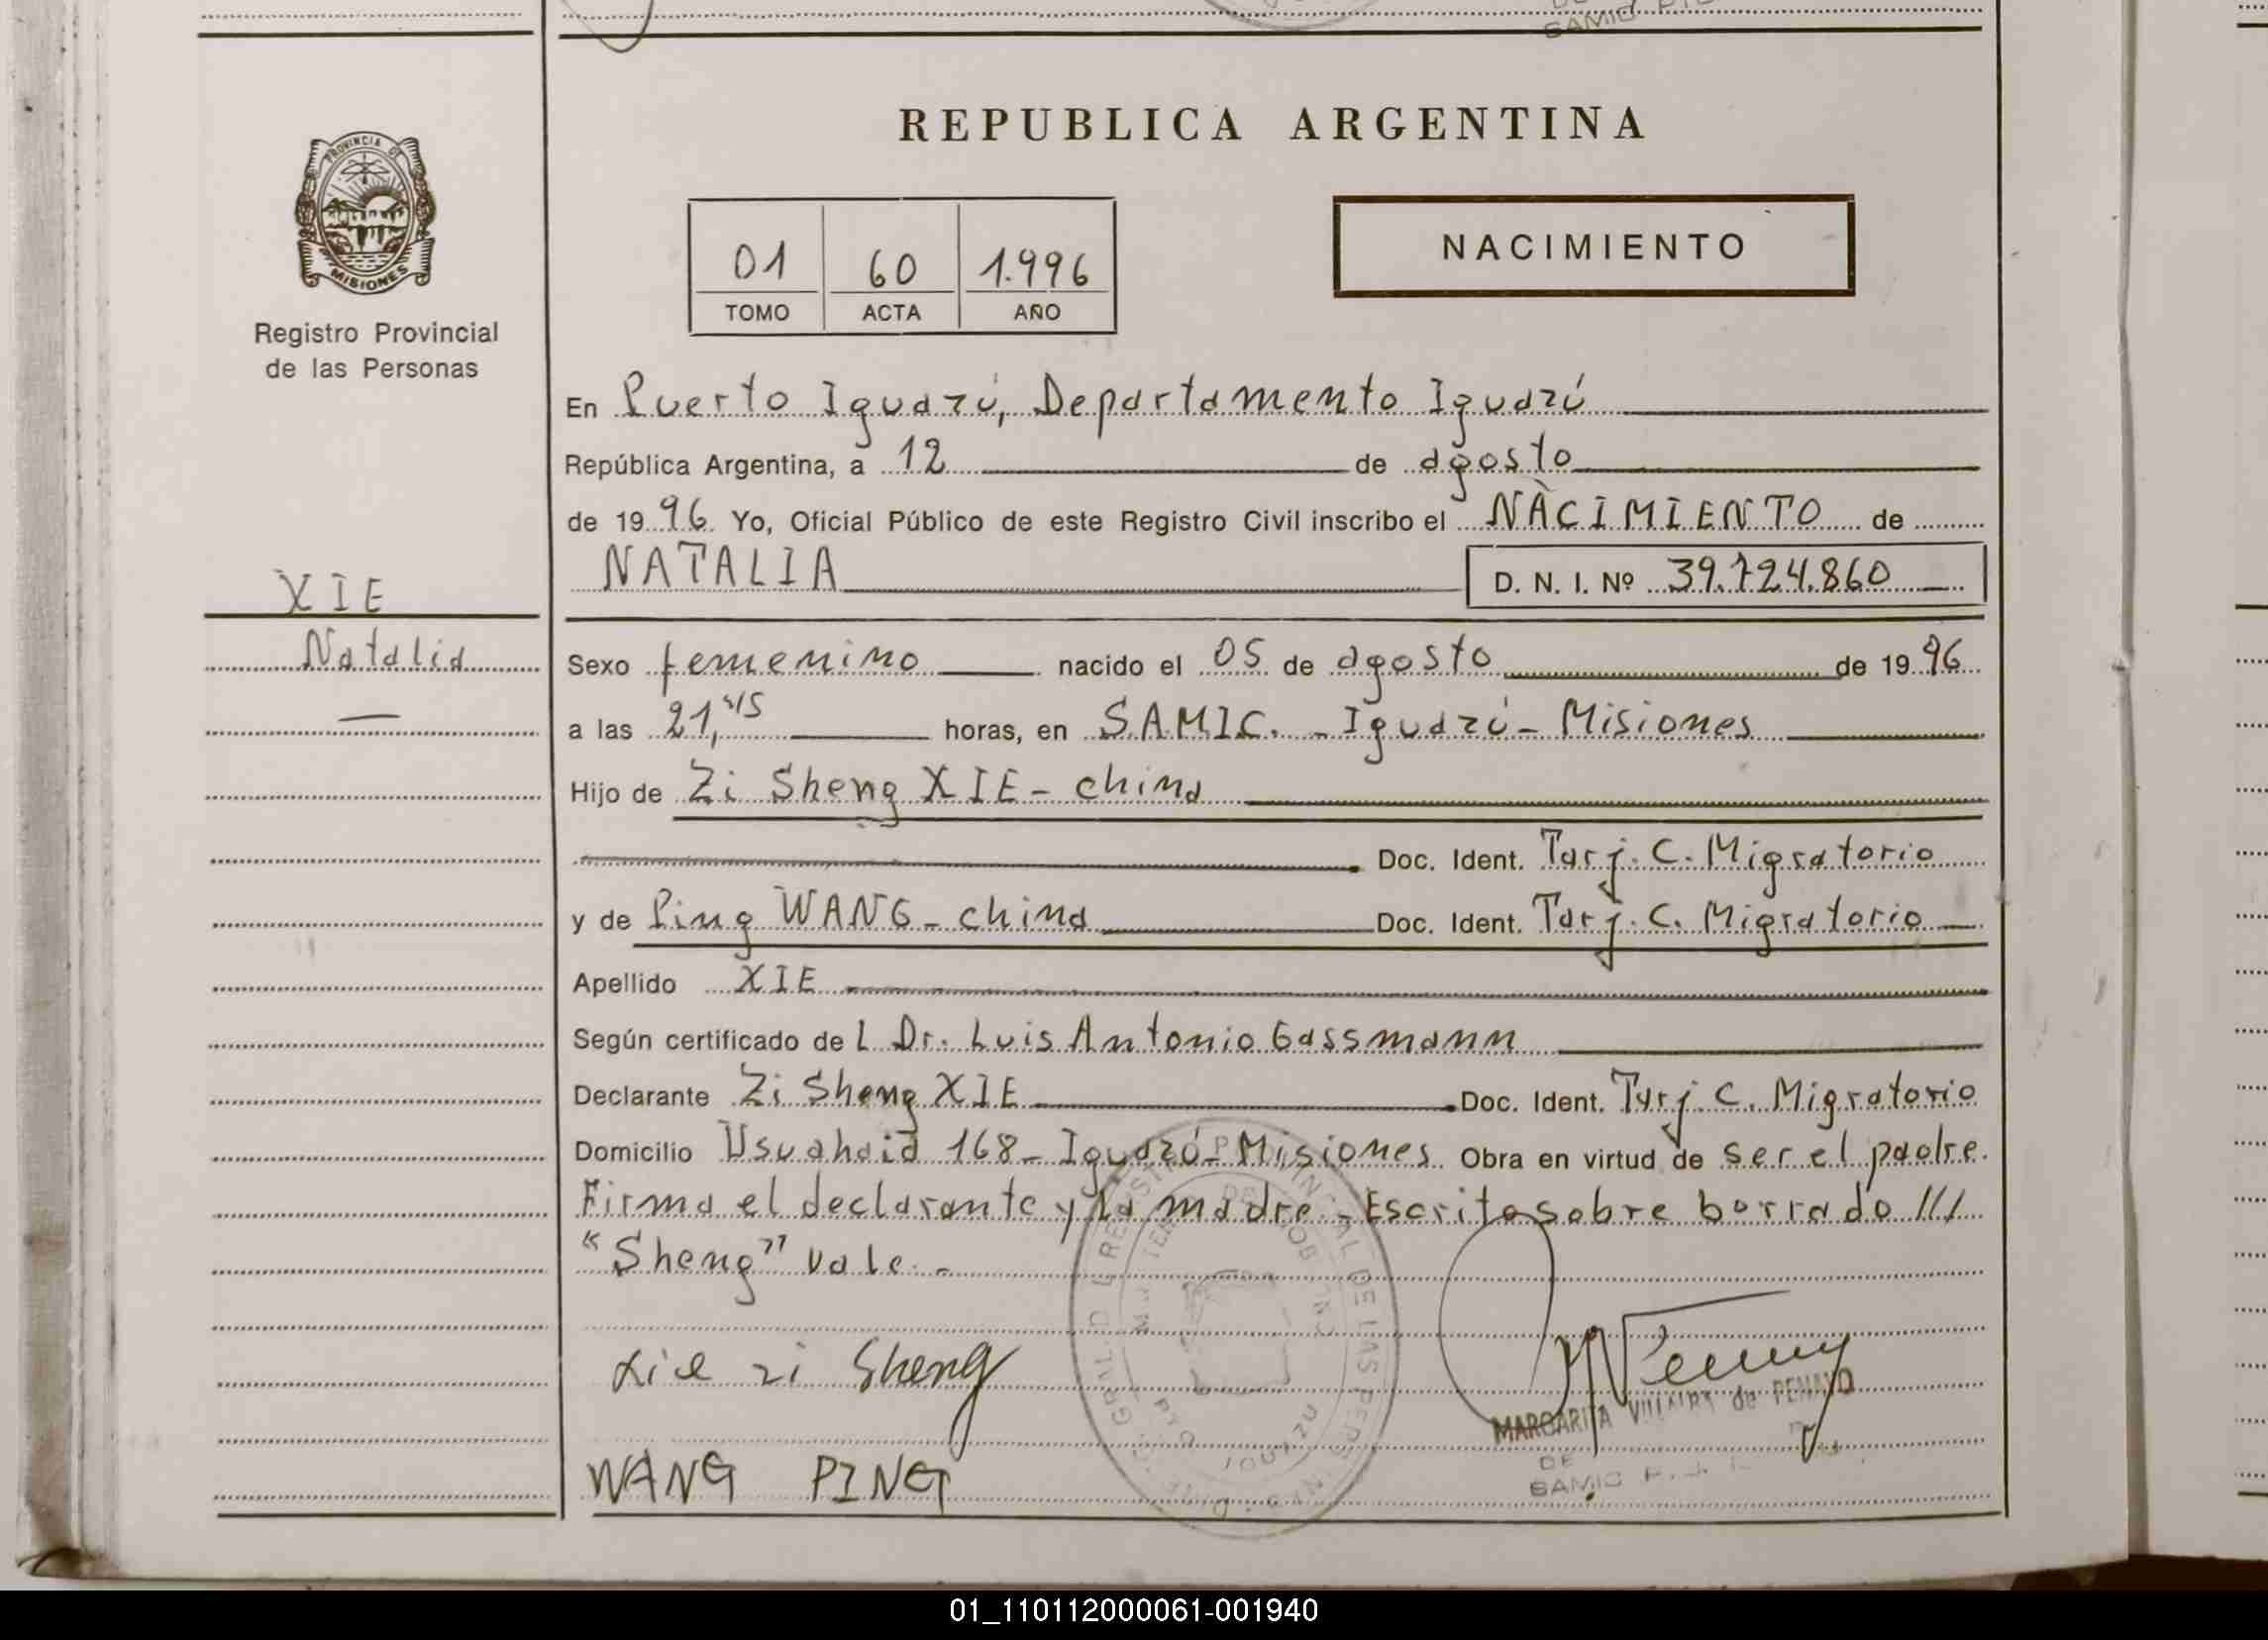 SAMIC
REPUBLICA ARGENTINA
PROVINCIA DE
MISIONES
Registro Provincial
de las Personas
01 60 1.996
TOMO ACTA AÑO
NACIMIENTO
En Puerto Iguazú, Departamento Iguazú
República Argentina, a 12 de agosto
de 1996 Yo, Oficial Público de este Registro Civil inscribo el NACIMIENTO de
NATALIA D. N. I. Nº 39.724.860
XIE
Natalia
Sexo femenino nacido el 05 de agosto de 1996
a las 21,45 horas, en S.A.M.I.C. - Iguazú - Misiones
Hijo de Zi Sheng XIE - china
Doc. Ident. Tarj. C. Migratorio
y de Ping WANG - china Doc. Ident. Tarj. C. Migratorio
Apellido XIE
Según certificado de l Dr. Luis Antonio Gassmann
Declarante Zi Sheng XIE Doc. Ident. Tarj. C. Migratorio
Domicilio Usuahaia 168 - Iguazú - Misiones Obra en virtud de ser el padre.
Firma el declarante y la madre - Escrito sobre borrado ///
"Sheng" vale. -
Xie zi Sheng
WANG PING
MARGARITA VILLALBA de PENAYO
DE
SAMIC
01_110112000061-001940